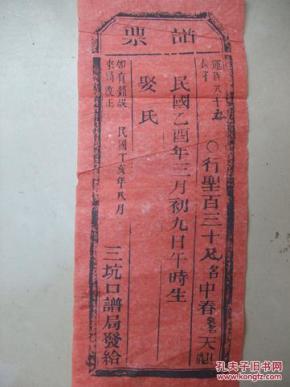 譜票
行聖百三十及名中春
天
民國乙酉年三月初九日午時生
娶氏
如有錯誤
來請改正
民國丁亥年八月
三坑口譜局發給